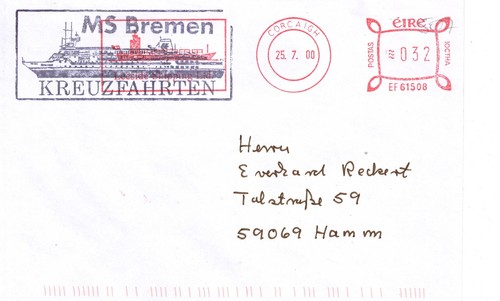 MS Bremen
Leeside Shipping Ltd.
KREUZFAHRTEN
CORCAIGH
25. 7. 00
ÉIRE
POSTAS
032
IOCTHA
EF 61508
Herrn
Everhard Reckert
Talstraße 59
59069 Hamm